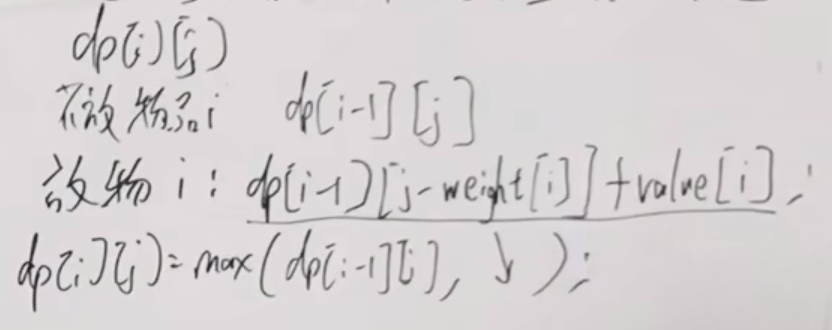 dp[i][j]
不放物品i dp[i-1][j]
放物i: dp[i-1][j-weight[i]]+value[i];
dp[i][j]=max(dp[i-1][j], ↓ );